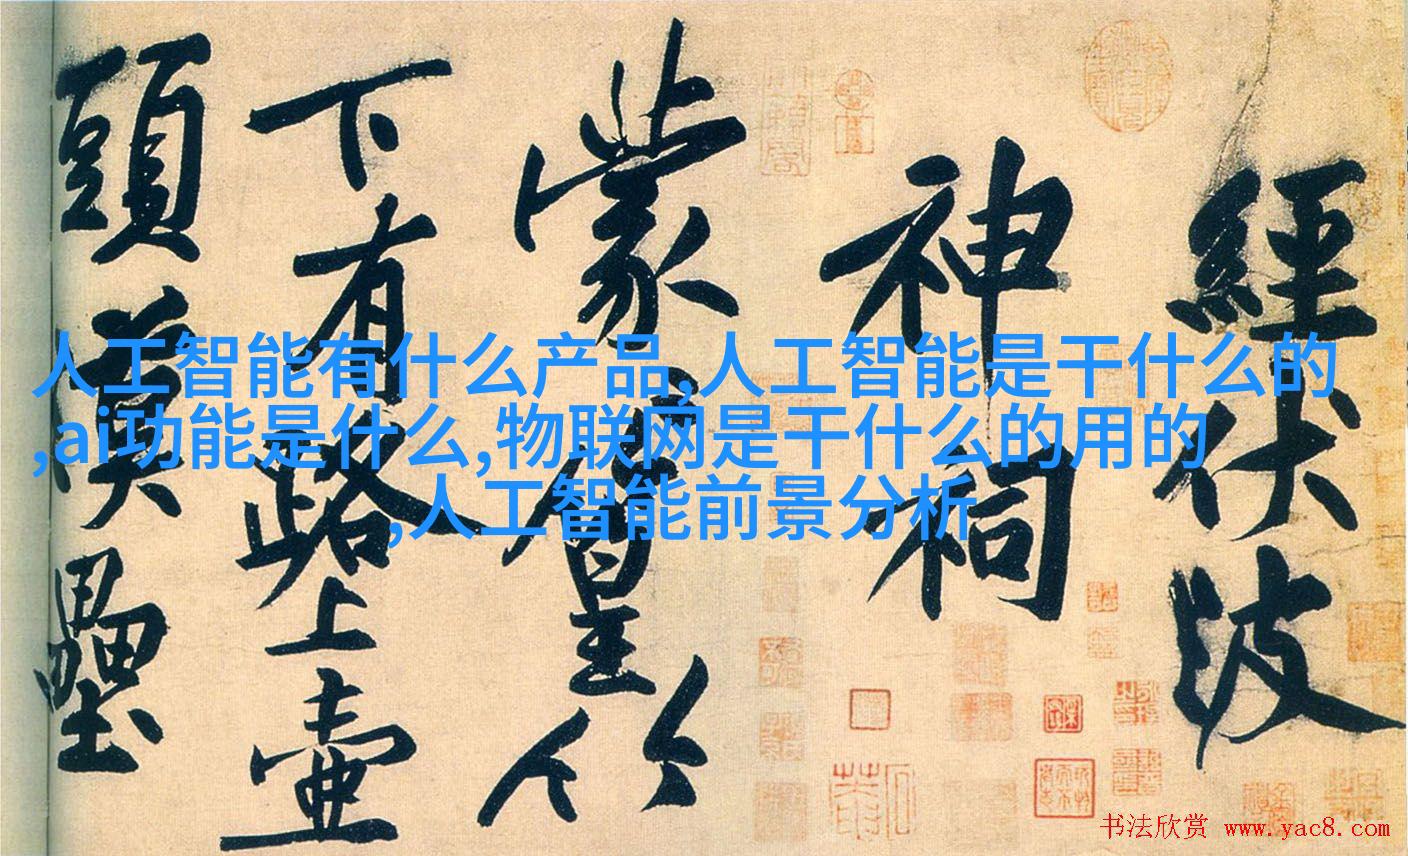 經伏波
神祠
蒙篁竹
下有路上壺
頭漢壘
人工智能有什么产品,人工智能是干什么的
,ai功能是什么,物联网是干什么的用的
,人工智能前景分析
书法欣赏 www.yac8.com